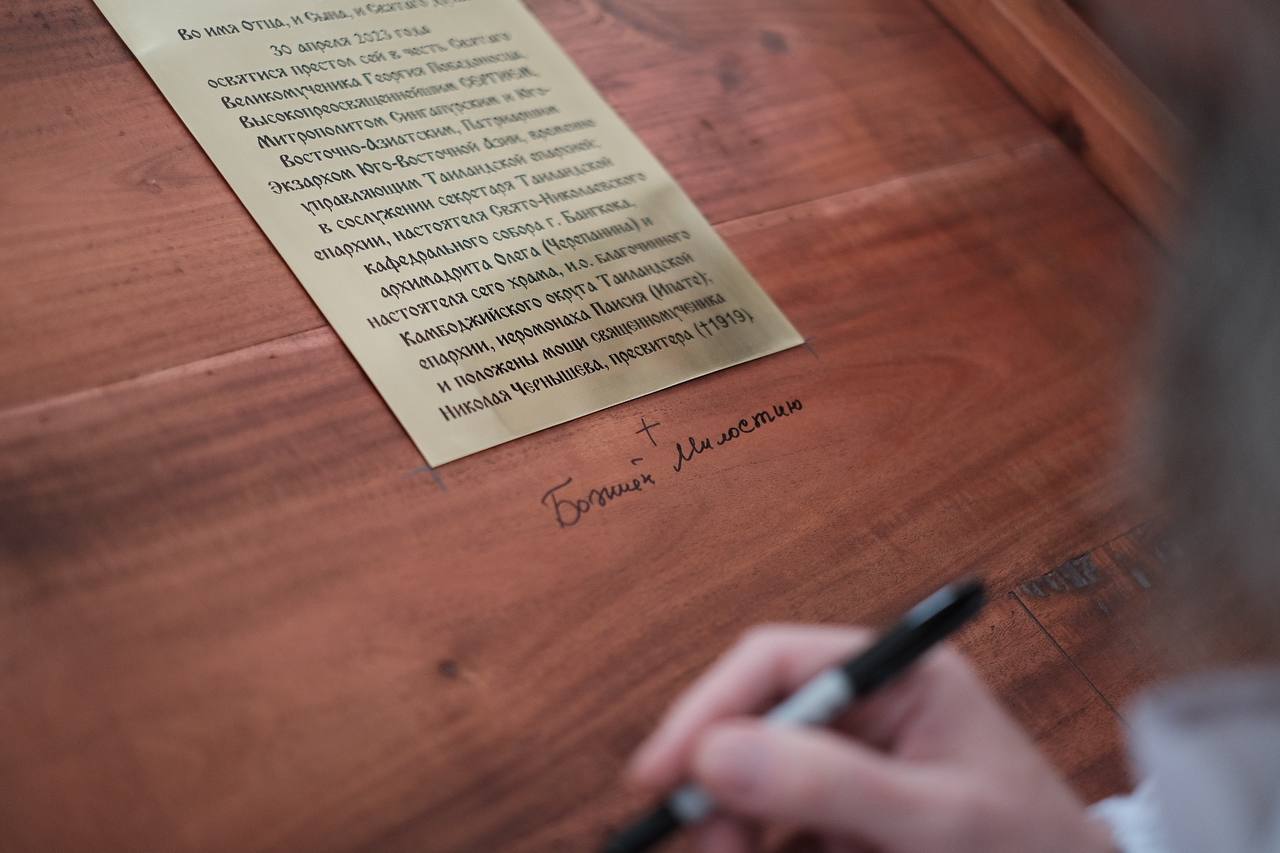 Во имя Отца, и Сына, и Святаго
30 апреля 2023 года
освятися престол сей в честь Святаго
Великомученика Георгия Победоносца
Высокопреосвященнейшим СЕРГИЕМ,
Митрополитом Сингапурским и Юго-
Восточно-Азиатским, Патриаршим
Экзархом Юго-Восточной Азии, временно
управляющим Таиландской епархией;
в сослужении секретаря Таиландской
епархии, настоятеля Свято-Николаевского
кафедрального собора г. Бангкока,
архимадрита Олега (Черепанина) и
настоятеля сего храма, и.о. благочинного
Камбоджийского округа Таиландской
епархии, иеромонаха Паисия (Ипате);
и положены мощи священномученика
Николая Чернышева, пресвитера (†1919)
†
Божией Милостию